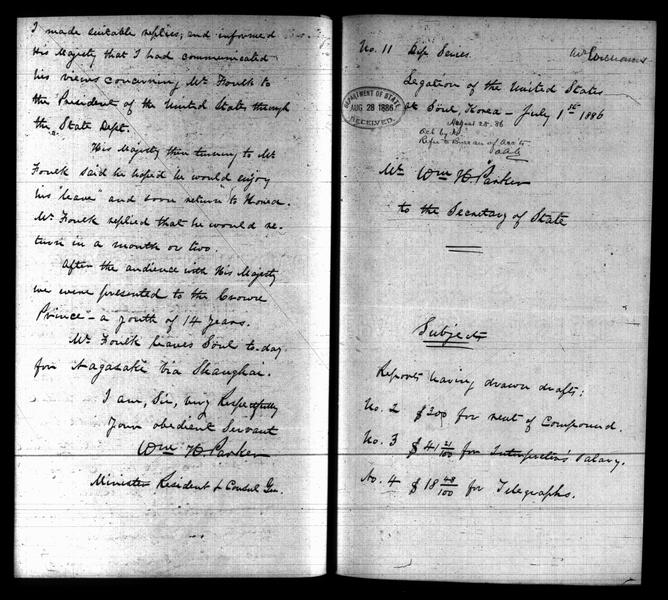 I made suitable replies; and informed
His Majesty that I had communicated
his views concerning Mr Foulk to
the President of the United States through
the State Dept.
His Majesty then turning to Mr
Foulk said he hoped he would enjoy
his "leave" and soon return to Korea.
Mr Foulk replied that he would re-
turn in a month or two.
After the audience with His Majesty
we were presented to the Crown
Prince - a youth of 14 years.
Mr Foulk leaves Söul to-day
for Nagasaki via Shanghai.
I am, Sir, very Respectfully
Your obedient Servant
Wm H. Parker
Minister Resident & Consul Gen.
No. 11 Dip Series Mr
Legation of the United States
at Söul, Korea - July 1st 1886
DEPARTMENT OF STATE
AUG 28 1886
RECEIVED.
August 28. 86
Ack by No
Refer to Bureau of Accts
Mr Wm H. Parker
to the Secretary of State
Subject
Reports having drawn drafts:
No. 2 $200 for rent of Compound.
No. 3 $41 21/100 for Interpreter's Salary.
No. 4 $18 48/100 for Telegraphs.